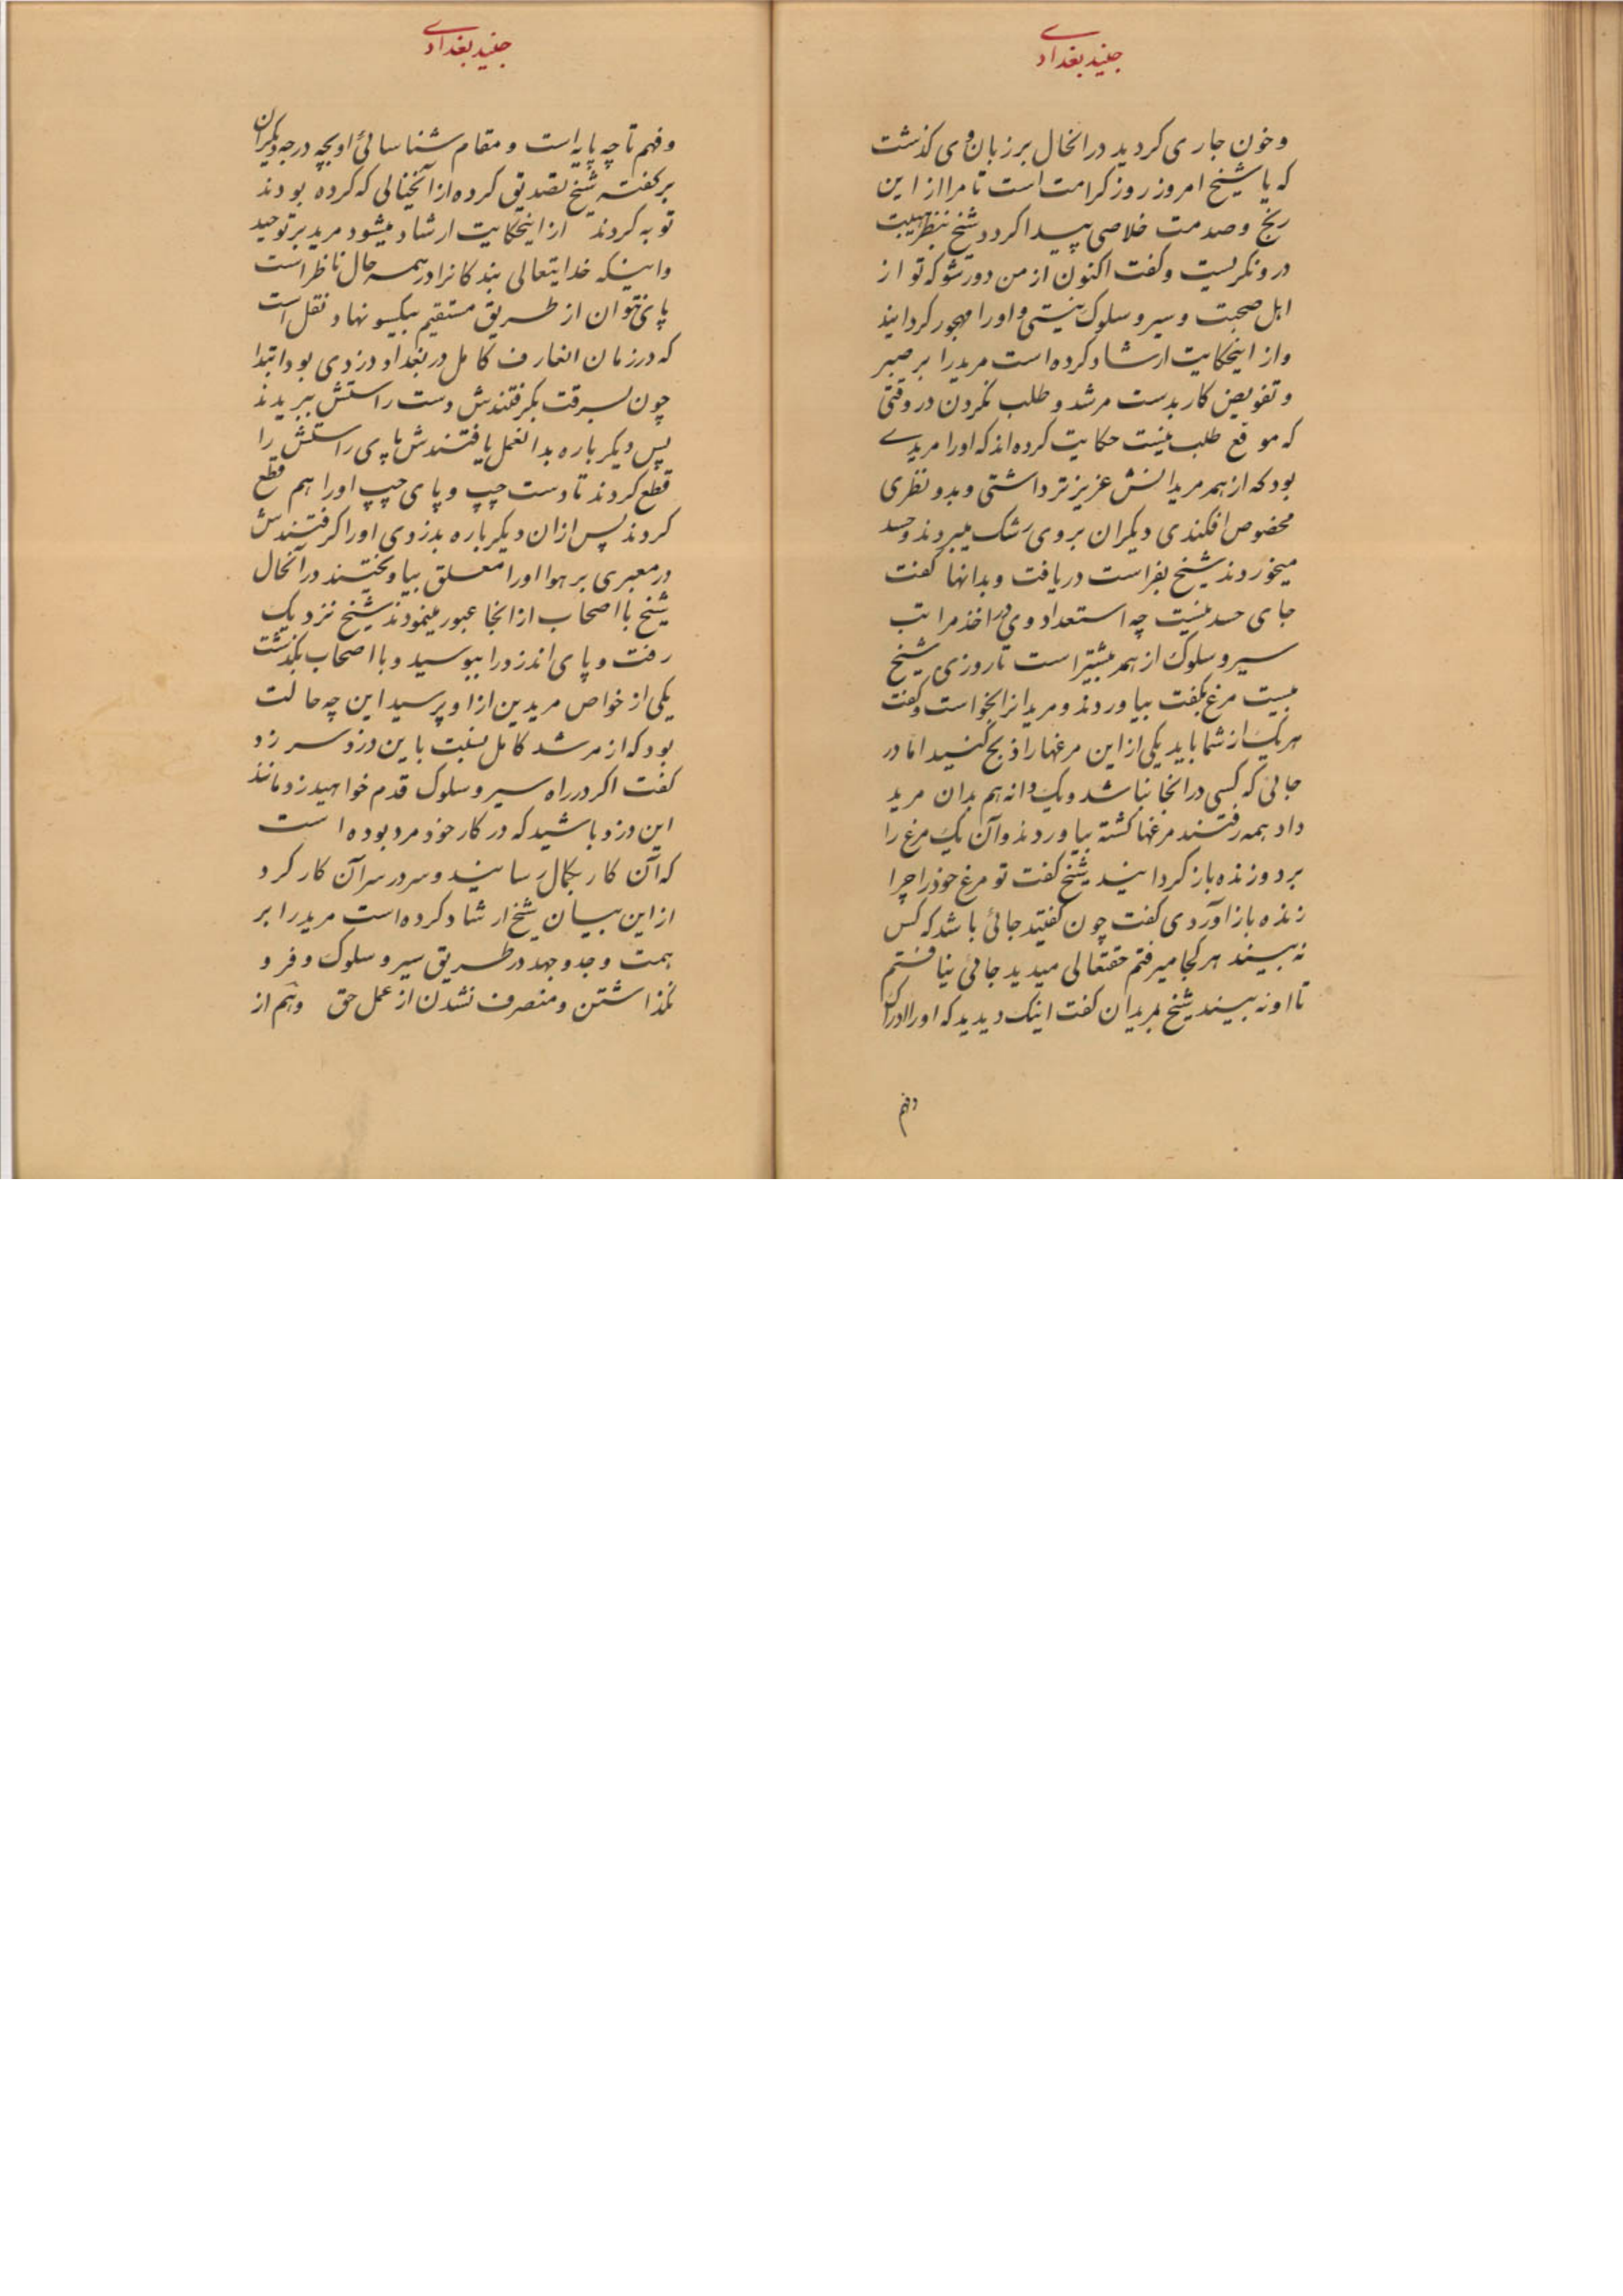 جنید بغدادی
و خون جاری کردید درانحال بر زبان وی کذشت
که یا شیخ امروز روز کرامت است تا مرا از این
رنج و صدمت خلاصی پیدا کردد شیخ بنظر هیبت
در ونکریست و کفت اکنون از من دور شو که تو از
اهل صحبت و سیر و سلوک نیستی و اورا مهجور کردانید
و از اینحکایت ارشاد کرده است مرید را بر صبر
و تفویض کار بدست مرشد و طلب نکردن در وقتی
که موقع طلب نیست حکایت کرده‌اند که اورا مریدی
بود که از همه مریدانش عزیزتر داشتی و بدو نظری
مخصوص افکندی دیکران بروی رشک میبردند و حسد
میخوردند شیخ بفراست دریافت و بدانها کفت
جای حسد نیست چه استعداد وی در اخذ مراتب
سیر و سلوک از همه بیشتر است تا روزی شیخ
بیست مرغ بکفت بیاوردند و مریدانرا بخواست و کفت
هریک از شما باید یکی از این مرغها را ذبح کنید اما در
جائی که کسی در انجا نباشد و یک دانه هم بدان مرید
داد همه رفتند مرغها کشته بیاوردند و آن یک مرغ را
برد و زنده باز کردانید شیخ کفت تو مرغ خود را چرا
زنده باز آوردی کفت چون کفتید جائی باشد که کس
نه بیند هر کجا میرفتم حقتعالی میدید جائی نیافتم
تا او نه بیند شیخ بمریدان کفت اینک دیدید که اورا ادراک
و فهم
جنید بغدادی
و فهم تا چه پایه است و مقام شناسائی او بچه درجه دیکران
بر کفته شیخ تصدیق کرده از آنخیالی که کرده بودند
توبه کردند از اینحکایت ارشاد میشود مرید بر توحید
و اینکه خدایتعالی بندکانرا در همه حال ناظر است
پای نتوان از طریق مستقیم بیکسو نهاد نقل است
که در زمان انعارف کامل در بغداد دزدی بود ابتدا
چون بسرقت بکرفتندش دست راستش ببریدند
پس دیکرباره بدانعمل یافتندش پای راستش را
قطع کردند تا دست چپ و پای چپ اورا هم قطع
کردند پس از ان دیکرباره بدزدی اورا کرفتندش
در معبری بر هوا اورا معلق بیاویختند در آنحال
شیخ با اصحاب از انجا عبور مینمودند شیخ نزدیک
رفت و پای اندزد را ببوسید و با اصحاب بکذشت
یکی از خواص مریدین از او پرسید این چه حالت
بود که از مرشد کامل نسبت باین دزد سر زد
کفت اکر در راه سیر و سلوک قدم خواهید زد مانند
این دزد باشید که در کار خود مرد بوده است
که آن کار بکمال رسانید و سر در سر آن کار کرد
از این بیان شیخ ارشاد کرده است مرید را بر
همت و جد و جهد در طریق سیر و سلوک و فرو
نکذاشتن و منصرف نشدن از عمل حق وهم از